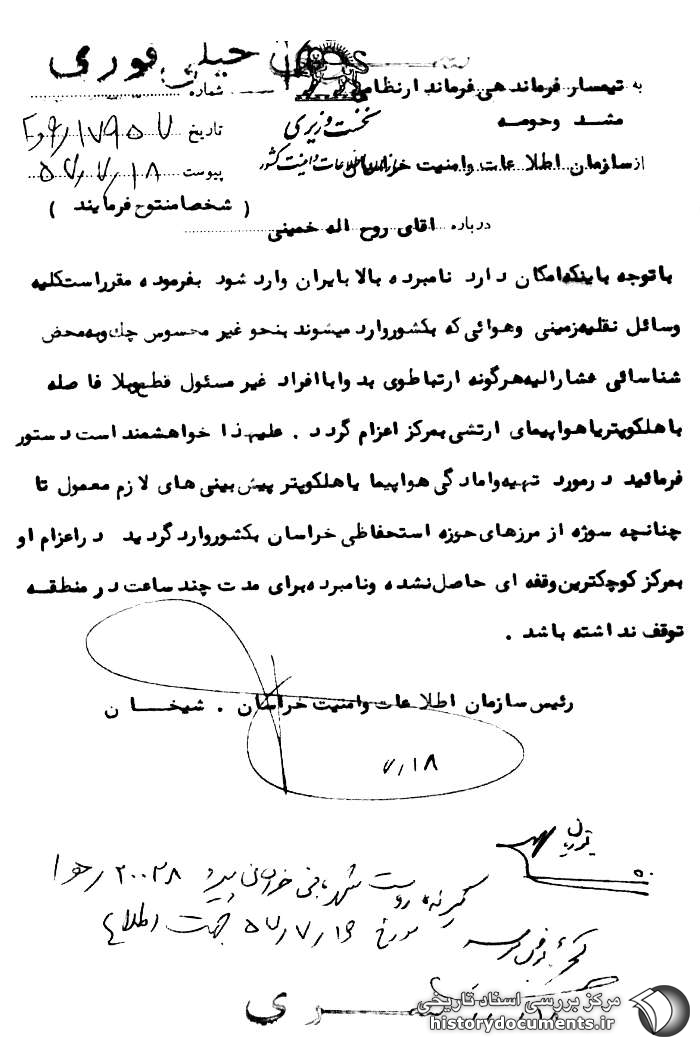 خیلی فوری
به تیمسار فرماندهی فرماندار نظامی
شماره
مشهد وحومه
نخست وزیری
تاریخ
از سازمان اطلاعات وامنیت خراسان
سازمان اطلاعات و امنیت کشور
پیوست ۵۷٫۷٫۱۸
( شخصا مفتوح فرمایند )
درباره اقای روح اله خمینی
باتوجه باینکه امکان دارد نامبرده بالا بایران وارد شود بفرموده مقرراست کلیه
وسائل نقلیه زمینی وهوائی که بکشوروارد میشوند بنحو غیر محسوس چک وبه محض
شناسائی مشارالیه هرگونه ارتباط وی بدوا با افراد غیر مسئول قطع وبلا فاصله
با هلکوپتر یا هواپیمای ارتشی بمرکز اعزام گردد . علیهذا خواهشمند است دستور
فرمائید درمورد تهیه وامادگی هواپیما یا هلکوپتر پیش بینی های لازم معمول تا
چنانچه سوژه از مرزهای حوزه استحفاظی خراسان بکشوروارد گردید دراعزام او
بمرکز کوچکترین وقفه ای حاصل نشده ونامبرده برای مدت چند ساعت در منطقه
توقف نداشته باشد .
رئیس سازمان اطلاعات وامنیت خراسان . شیخان
۷٫۱۸
مورخ ۵۷٫۷٫۱۶ جهت اطلاع
مرکز بررسی اسناد تاریخی
historydocuments.ir